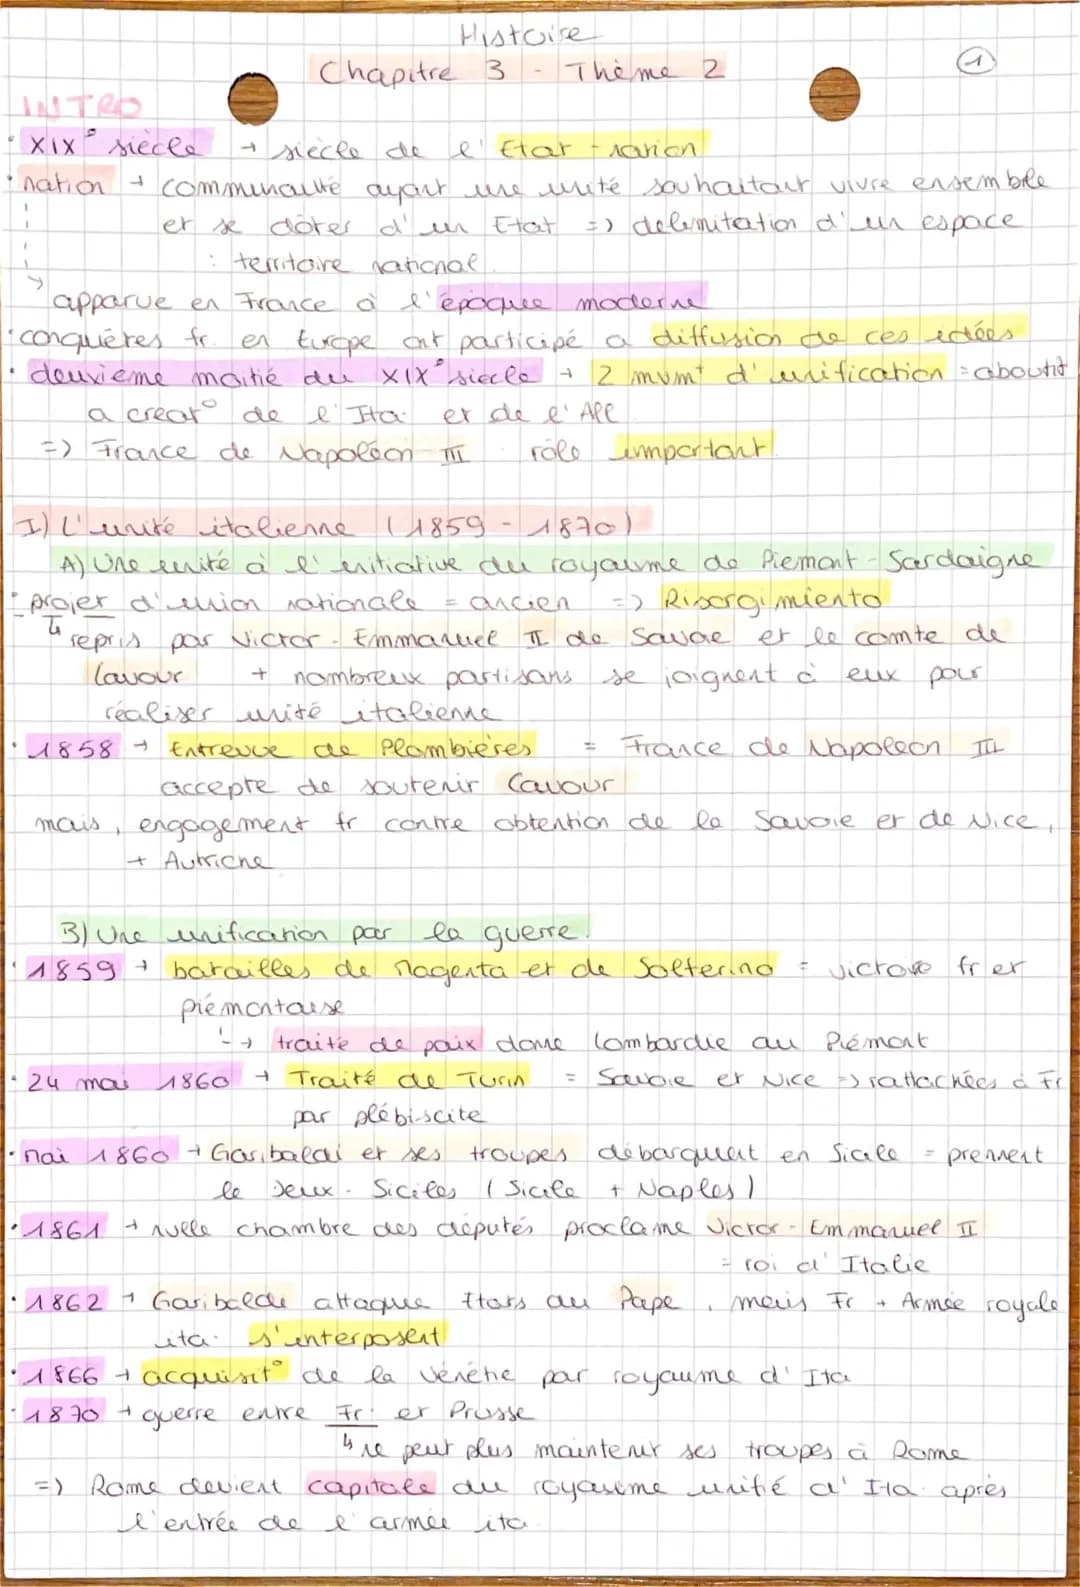 Histoire
Chapitre 3 - Thème 2
1
INTRO
• XIX° siècle → siècle de l'Etat-nation
• nation → communauté ayant une unité souhaitant vivre ensemble
et se dôter d'un Etat => délimitation d'un espace
: territoire national
apparue en France à l'époque moderne
• conquêtes fr. en Europe ont participé a diffusion de ces idées
• deuxième moitié du XIX° siecle → 2 mvmt d'unification = aboutit
a creat° de l'Ita. et de l'All
=> France de Napoléon III : rôle important.
I) L'unité italienne (1859 - 1870)
A) Une unité à l'initiative du royaume de Piemont-Sardaigne
• projet d'union nationale = ancien => Risorgimiento
↳ repris par Victor-Emmanuel II de Savoie et le comte de
Cavour + nombreux partisans se joignent à eux pour
réaliser unité italienne
• 1858 → Entrevue de Plombières = France de Napoleon III
accepte de soutenir Cavour
mais, engagement fr contre obtention de la Savoie et de Nice,
+ Autriche
B) Une unification par la guerre.
• 1859 → batailles de Magenta et de Solferino = victoire fr et
piémontaise
↳ traité de paix donne Lombardie au Piémont
• 24 mai 1860 → Traité de Turin = Savoie et Nice => rattachées à Fr
par plébiscite
• mai 1860 → Garibaldi et ses troupes débarquent en Sicile = prennent
le Deux-Siciles (Sicile + Naples)
• 1861 → nvelle chambre des députés proclame Victor-Emmanuel II
= roi d'Italie
• 1862 → Garibaldi attaque Etats du Pape, mais Fr + Armée royale
ita. s'interposent
• 1866 → acquisit° de la Vénétie par royaume d'Ita
• 1870 → guerre entre Fr. et Prusse
↳ ne peut plus maintenir ses troupes à Rome
=> Rome devient capitale du royaume unifié d'Ita. après
l'entrée de l'armée ita.